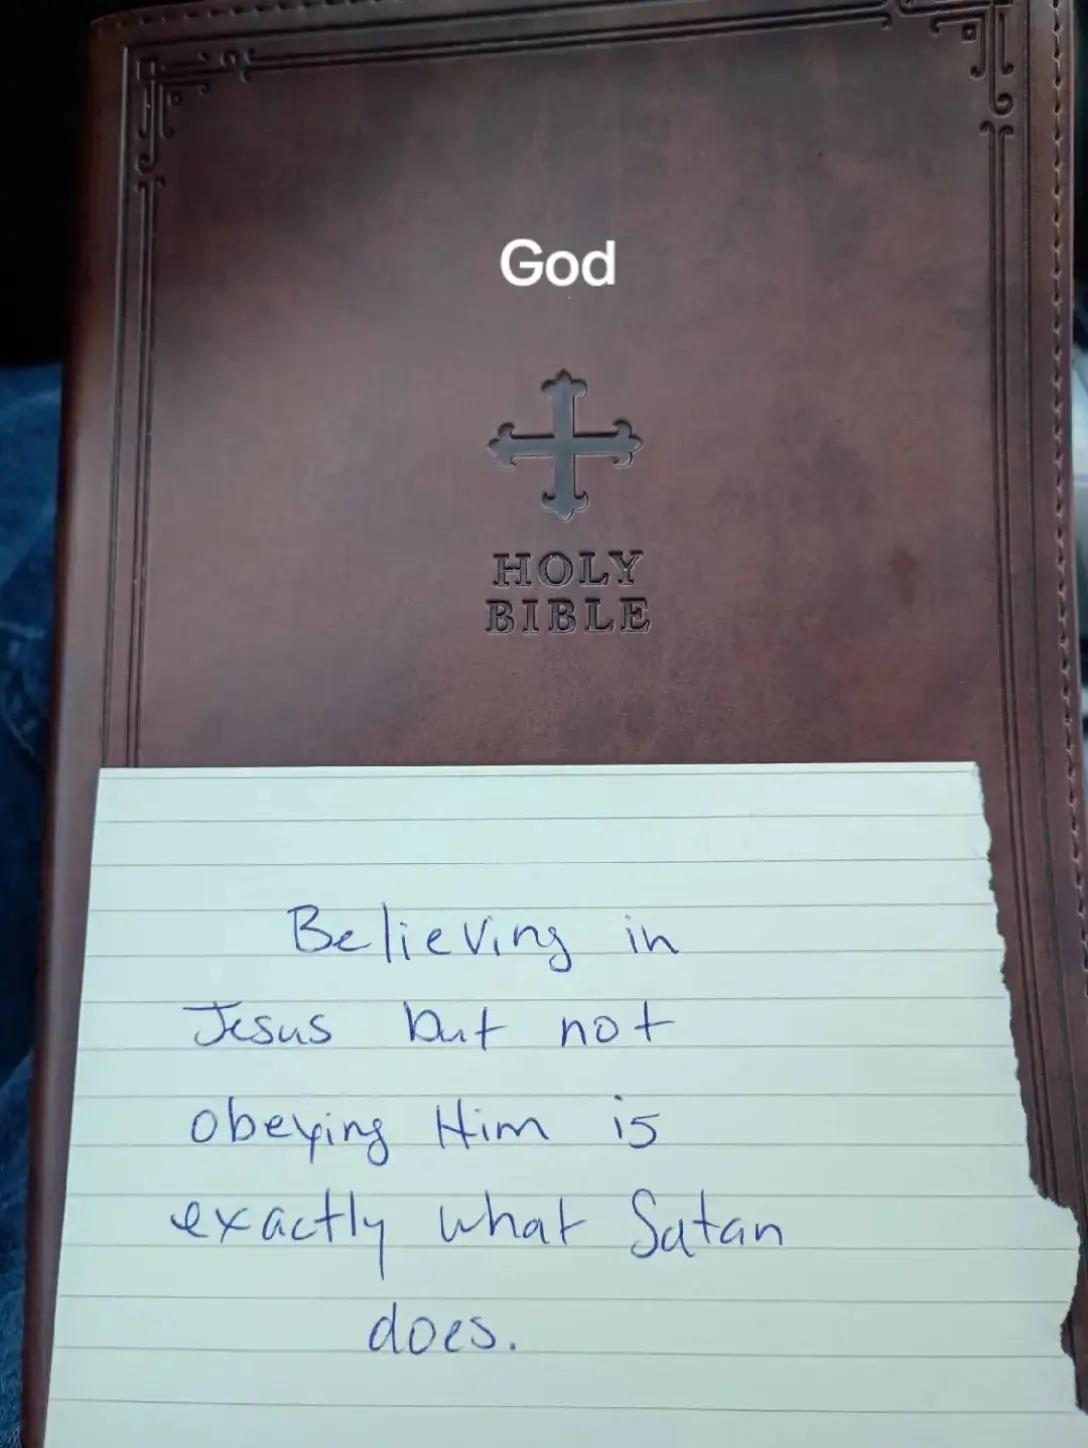 God
HOLY
BIBLE
Believing in
Jesus but not
obeying Him is
exactly what Satan
does.